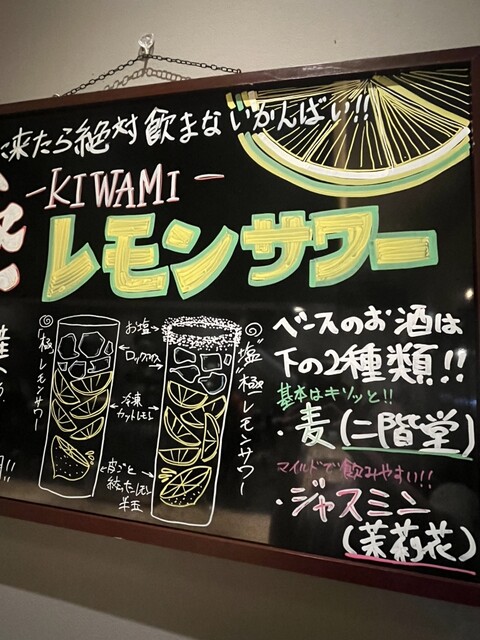 来たら絶対飲まないかんばい!!
極
-KIWAMI-
レモンサワー
◎"極"レモンサワー
お塩
ロックアイス
冷凍
カットレモン
皮ごと
絞ったレモン
半玉
◎"塩""極"レモンサワー
ベースのお酒は
下の2種類!!
基本はキリッと!!
・麦(二階堂)
マイルドで飲みやすい!!
・ジャスミン
(茉莉花)